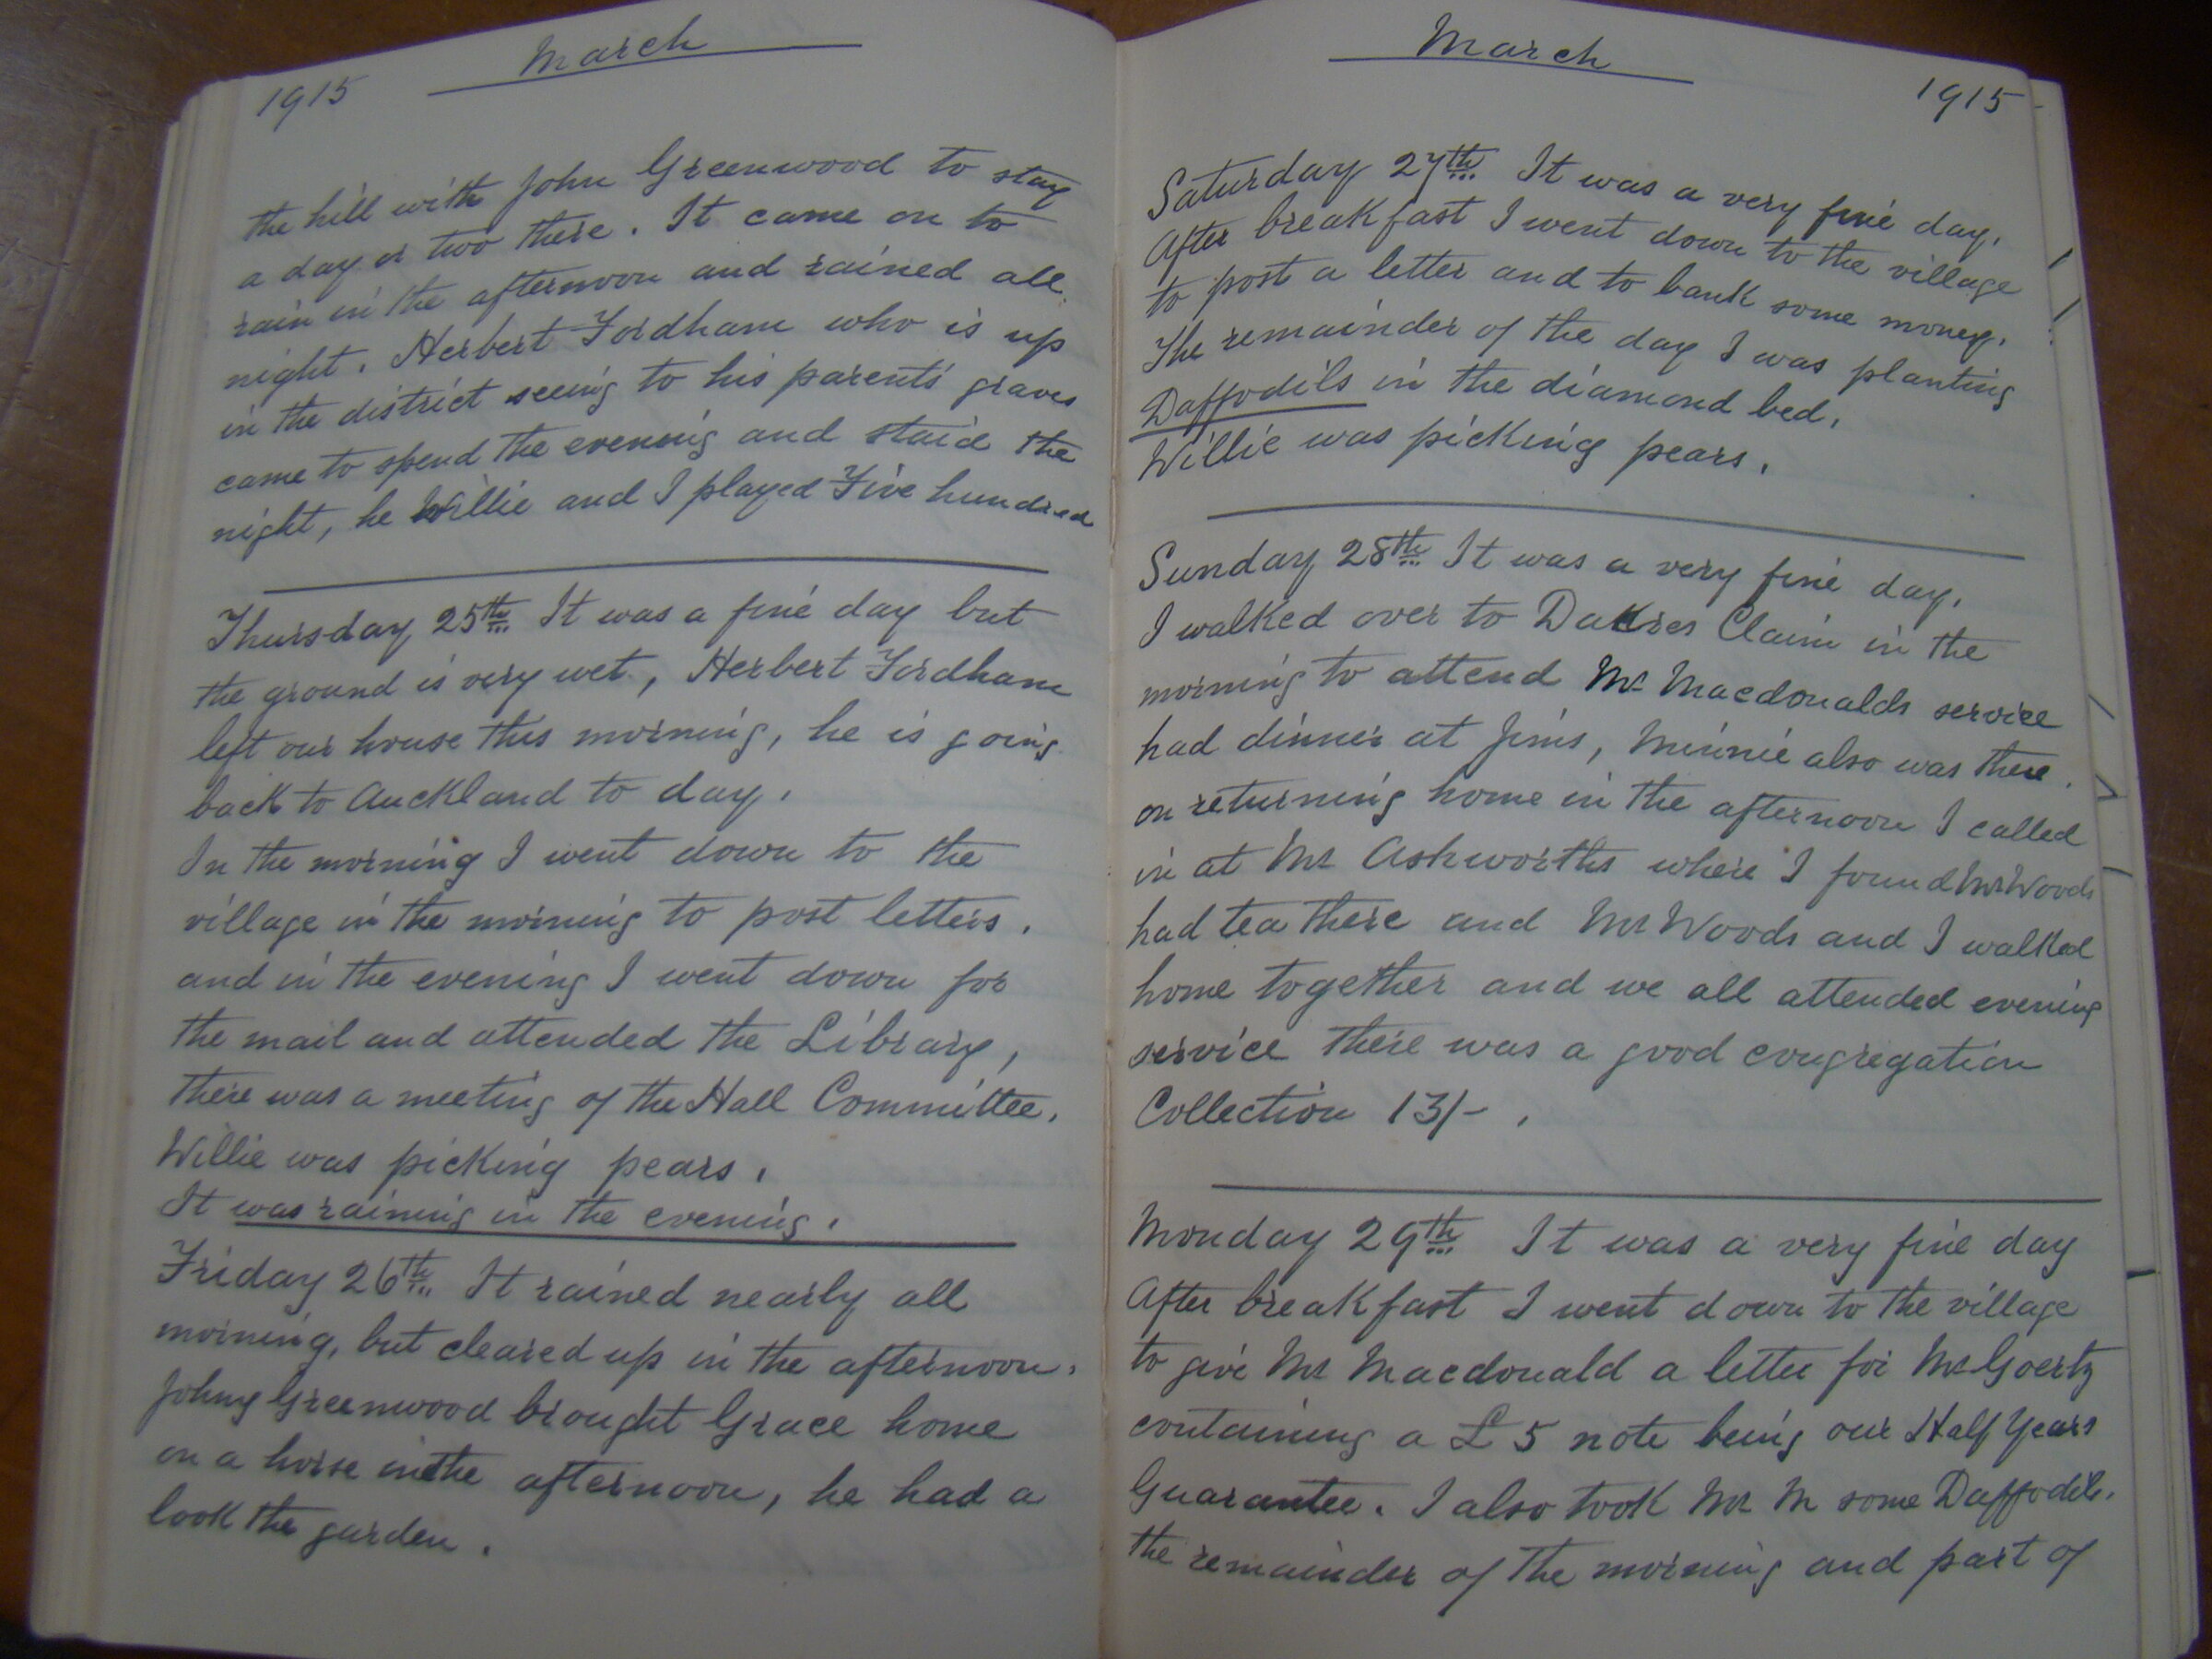 March
1915
the hill with John Greenwood to stay
a day or two there. It came on to
rain in the afternoon and rained all
night. Herbert Fordham who is up
in the district seeing to his parents' graves
came to spend the evening and staid the
night, he Willie and I played Five hundred
Thursday 25th It was a fine day but
the ground is very wet, Herbert Fordham
left our house this morning, he is going
back to Auckland to day.
In the morning I went down to the
village in the morning to post letters.
and in the evening I went down for
the mail and attended the Library,
there was a meeting of the Hall Committee.
Willie was picking pears.
It was raining in the evening.
Friday 26th It rained nearly all
morning, but cleared up in the afternoon.
Johny Greenwood brought Grace home
on a horse in the afternoon, he had a
look the garden.
March
1915
Saturday 27th It was a very fine day.
After breakfast I went down to the village
to post a letter and to bank some money.
The remainder of the day I was planting
Daffodils in the diamond bed.
Willie was picking pears.
Sunday 28th It was a very fine day.
I walked over to Dakres Claim in the
morning to attend Mr Macdonalds service
had dinner at Jims, Minnie also was there.
on returning home in the afternoon I called
in at Mr Ashworths where I found Mr Woods
had tea there and Mr Woods and I walked
home together and we all attended evening
service there was a good congregation
Collection 13/-.
Monday 29th It was a very fine day
After breakfast I went down to the village
to give Mr Macdonald a letter for Mr Goertz
containing a £5 note being our Half Years
Guarantee. I also took Mr M some Daffodils.
the remainder of the morning and part of